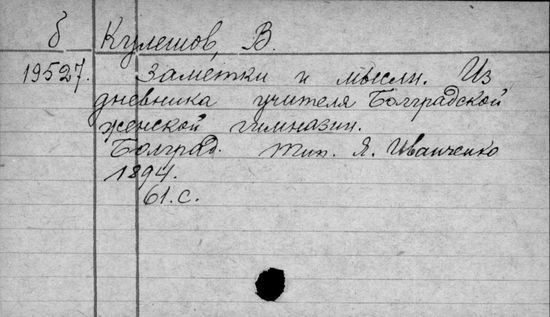 б Кулешов, В.
19527. Заметки и мысли. Из
дневника учителя Болградской
женской гимназии.
Болград. тип. Я. Иванченко
1894.
61.с.